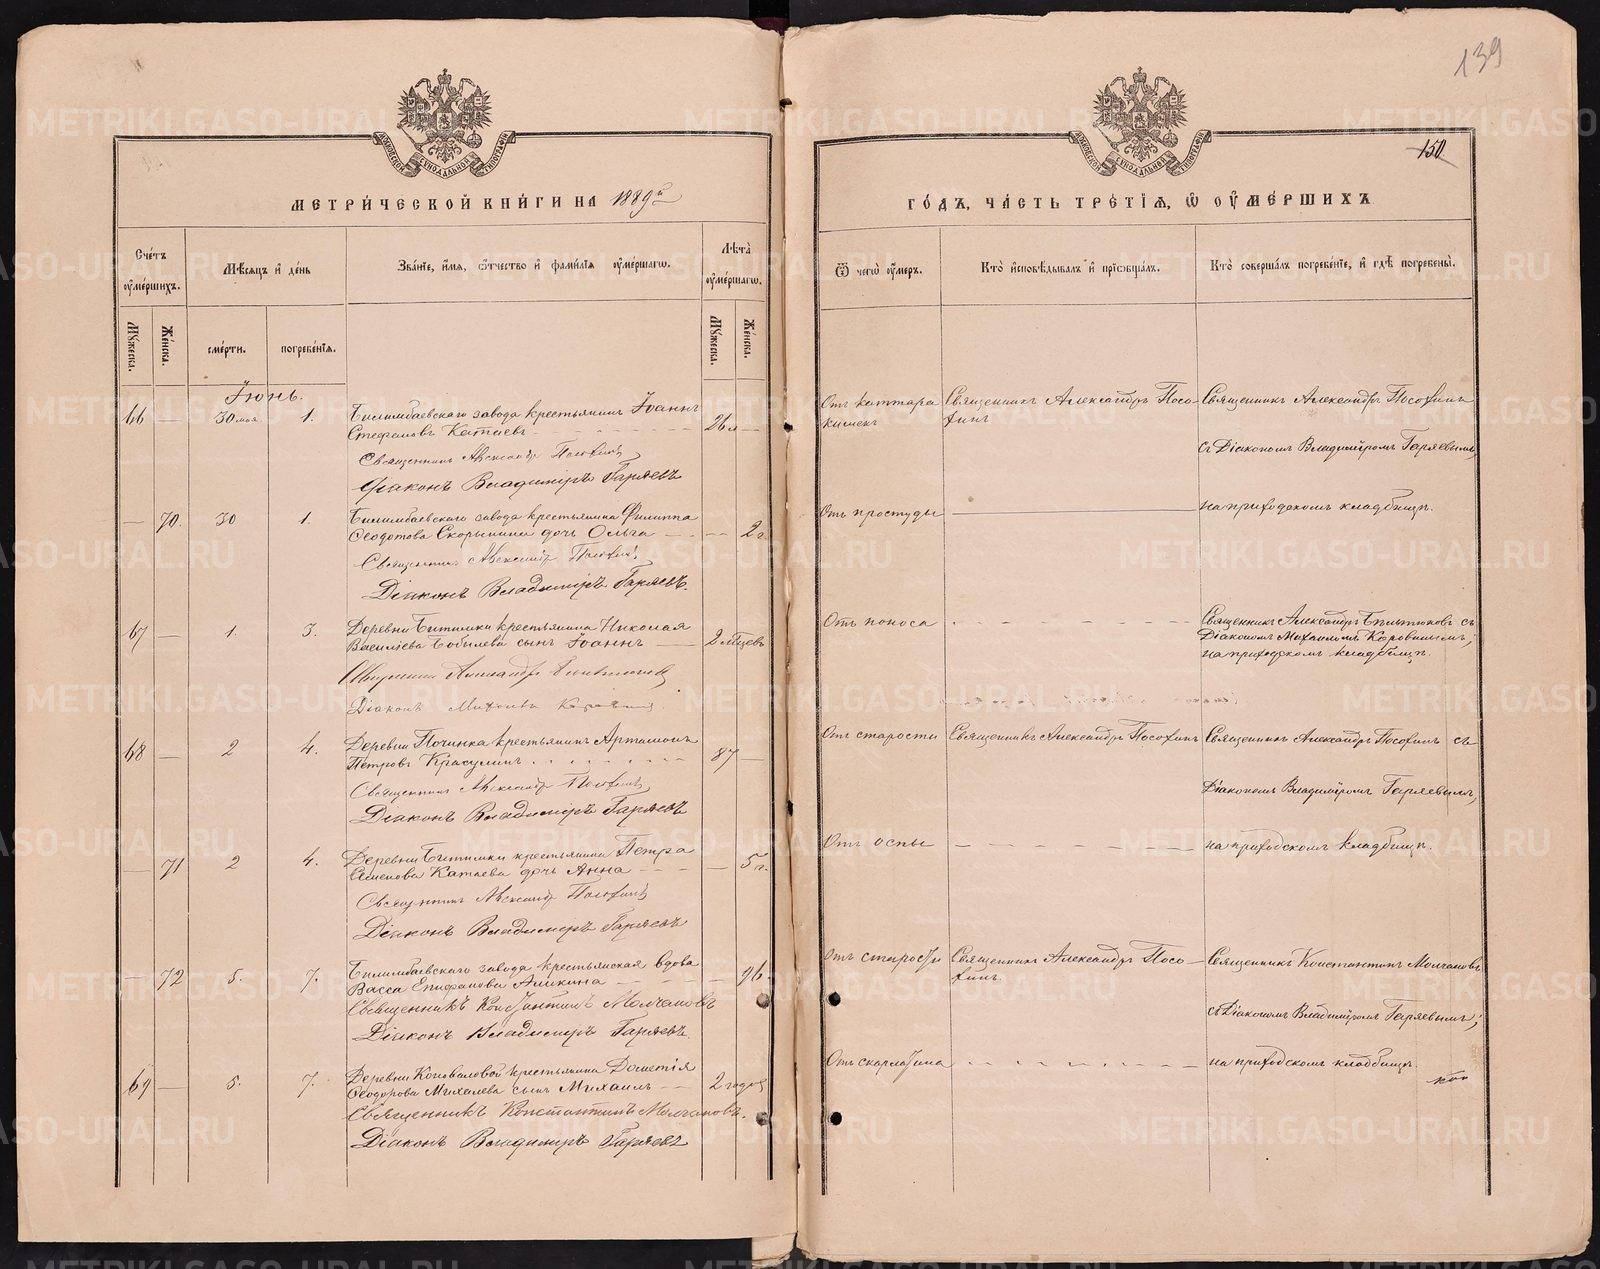 139
150
МЕТРИ́ЧЕСКОЙ КНИ́ГИ НА 1889й
ГО́ДЪ, ЧА́СТЬ ТРЕ́ТІѦ, Ѿ ОУ҆МЕ́РШИХЪ
Сче́тъ оу҆ме́ршихъ.
Мѣ́сяцъ и҆ де́нь
Зва́нїе, и҆́мѧ, ѻ҆́тчество и҆ фамі́лїѧ оу҆ме́ршагѡ.
Лѣ́та оу҆ме́ршагѡ.
Ѿ чегѡ̀ оу҆́меръ.
Кто̀ и҆сповѣ́дывалъ и҆ прїѡбща́лъ.
Кто̀ соверша́лъ погребе́нїе, и҆ гдѣ̀ погребены̀.
Мꙋ́жеска.
Же́нска.
сме́рти.
погребе́нїѧ.
Мꙋ́жеска.
Же́нска.
Іюнь.
66 — 30 мая 1. Билимбаевскаго завода крестьянинъ Іоаннъ
Стефановъ Катаевъ 26 л —
Священникъ Александръ Посохинъ
Діаконъ Владиміръ Гаряевъ
Отъ
Священникъ Александръ Посо-
хинъ
Священникъ Александръ Посохинъ
съ Діакономъ Владиміромъ Гаряевымъ,
— 70. 30 1. Билимбаевскаго завода крестьянина Филиппа
Ѳеодотова Скорынина дочь Ольга — 2 г.
Священникъ Александръ Посохинъ
Діаконъ Владиміръ Гаряевъ.
Отъ простуды —
на приходскомъ кладбищѣ.
67 — 1. 3. Деревни Битимки крестьянина Николая
Василіева Бобылева сынъ Іоаннъ — 2 мѣсцевъ
Священникъ Александръ
Діаконъ Михаилъ Коровинъ.
Отъ поноса
Священникъ Александръ съ
Діакономъ Михаиломъ Коровинымъ,
на приходскомъ кладбищѣ.
68 — 2 4. Деревни Починка крестьянинъ Артамонъ
Петровъ Красулинъ 87 —
Священникъ Александръ Посохинъ
Діаконъ Владиміръ Гаряевъ
Отъ старости
Священникъ Александръ Посохинъ
Священникъ Александръ Посохинъ съ
Діакономъ Владиміромъ Гаряевымъ,
— 71 2 4. Деревни Битимки крестьянина Петра
Семенова Катаева дочь Анна — 5 г.
Священникъ Александръ Посохинъ
Діаконъ Владиміръ Гаряевъ
Отъ оспы
на приходскомъ кладбищѣ.
— 72 5. 7. Билимбаевскаго завода крестьянская вдова
Васса Епифанова Аликина — 96
Священникъ Константинъ Молчановъ
Діаконъ Владиміръ Гаряевъ.
Отъ старости
Священникъ Александръ Посо-
хинъ.
Священникъ Константинъ Молчановъ
съ Діакономъ Владиміромъ Гаряевымъ;
69 — 5. 7. Деревни Коноваловой крестьянина Дометія
Ѳеодорова Михалева сынъ Михаилъ — 2 годовъ
Священникъ Константинъ Молчановъ.
Діаконъ Владиміръ Гаряевъ
Отъ скарлатина
на приходскомъ кладбищѣ.
METRIKI.GASO-URAL.RU